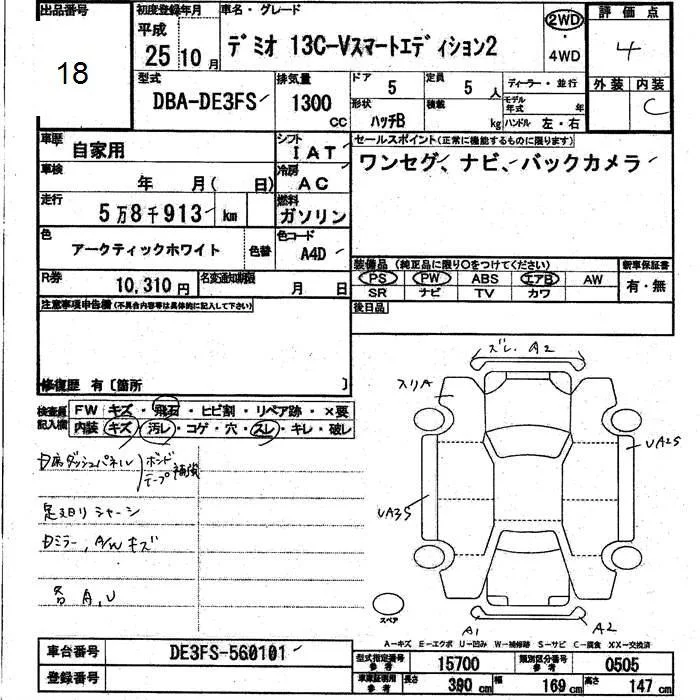 出品番号 初度登録年月 車名・グレード 評価点
平成 デミオ 13C-Vスマートエディション2 2WD 4
18 25年10月 ・
4WD
型式 排気量 ドア 定員 ディーラー・並行 外装 内装
DBA-DE3FS 1300 CC 5 5人 モデル年式 年 C
形状 積載
ハッチB kg ハンドル 左・右
車歴 自家用 シフト IAT セールスポイント(正常に機能するものに限ります)
車検 年 月(日) 冷房 AC ワンセグ、ナビ、バックカメラ
走行 5万8千913km 燃料 ガソリン
色 アークティックホワイト 色替 色コード A4D
装備品(純正品に限り○をつけてください) 新車保証書
R券 10,310円 名変通知期限 月 日 PS PW ABS エアB AW 有・無
SR ナビ TV カワ
注意事項申告欄(不具合内容等は具体的に記入して下さい) 後日品
修復歴 有〔箇所 〕
検査員記入欄 FW キズ・飛石・ヒビ割・リペア跡・×要
内装 キズ・汚レ・コゲ・穴・スレ・キレ・破レ
ズレ. A2
スリA
ダッシュパネル ボンド テープ 補強
UA2S
足廻リ シャーシ
UA3S
ミラー, A/W キズ
各 A, U
スペア
A1 A2
A-キズ E-エクボ U-凹み W-補修跡 S-サビ C-腐食 XX-交換済
車台番号 DE3FS-560101
型式指定番号 参考 15700 類別区分番号 参考 0505
登録番号
車庫証明用 参考 長さ 390cm 幅 169cm 高さ 147cm